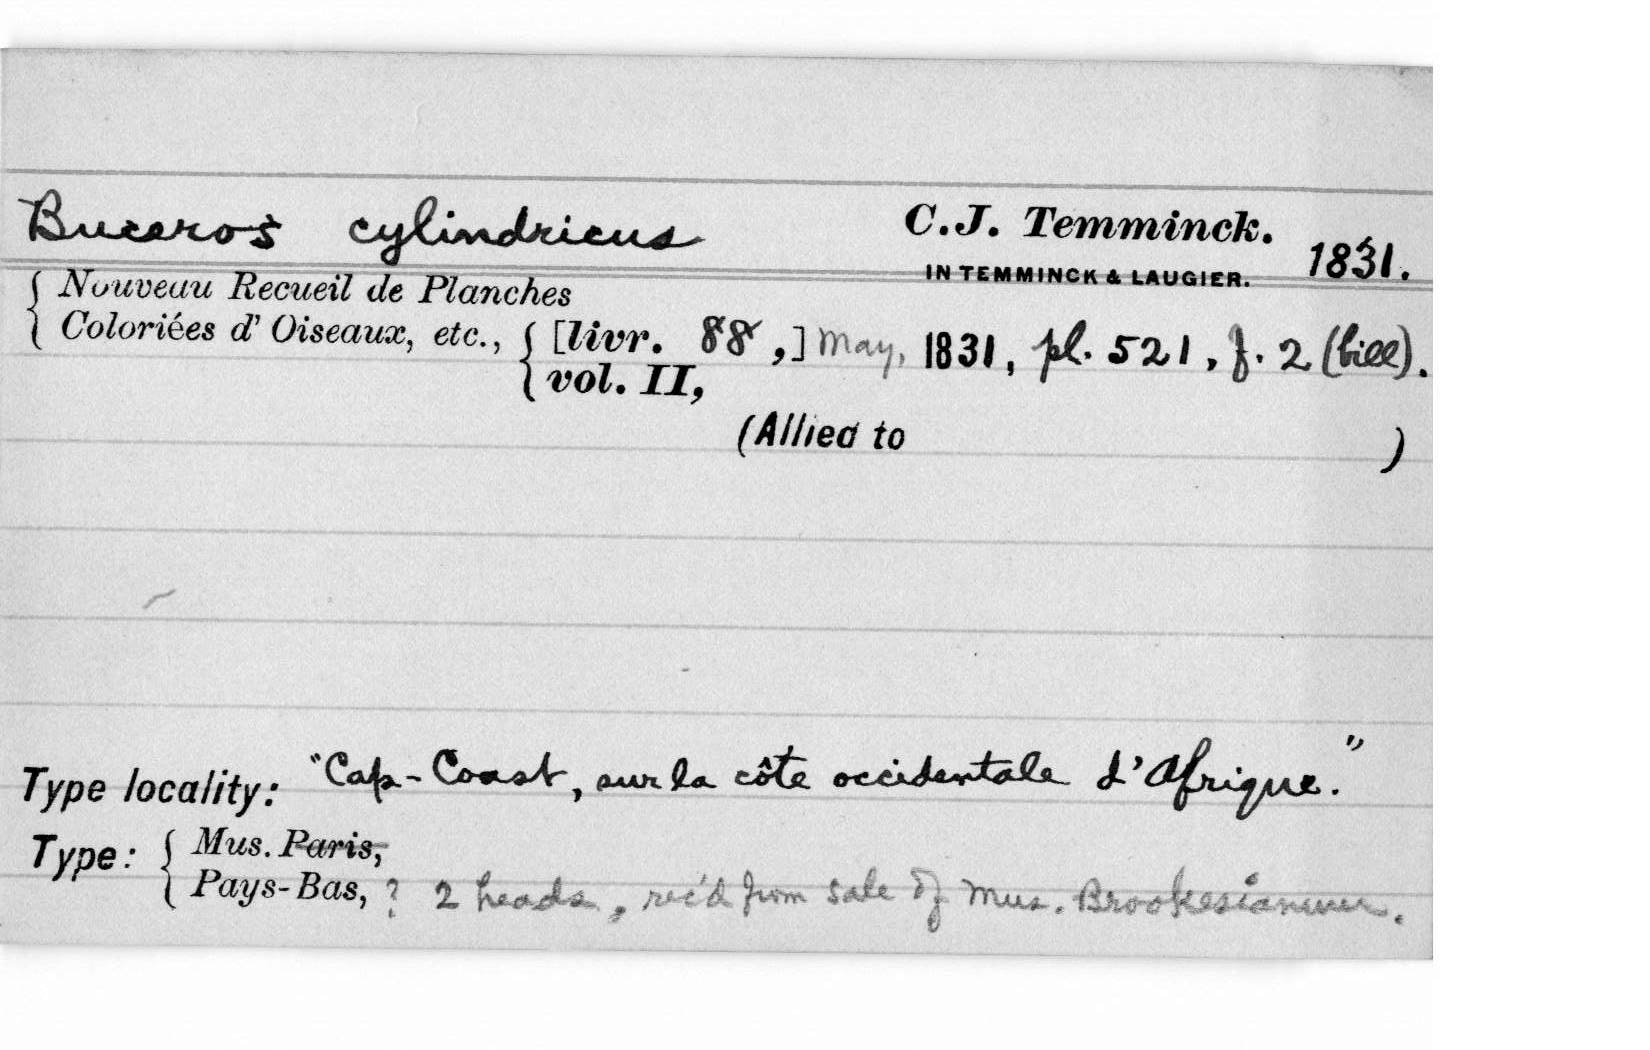 Buceros cylindricus C.J. Temminck. 1831.
IN TEMMINCK & LAUGIER.
Nouveau Recueil de Planches
Coloriées d'Oiseaux, etc., [livr. 88,] May, 1831, pl. 521, f. 2 (bill).
vol. II,
(Allied to )
Type locality: "Cap-Coast, sur la côte occidentale d'Afrique."
Type: Mus. Paris,
Pays-Bas, ? 2 heads, rec'd from sale of Mus. Brookesianum.